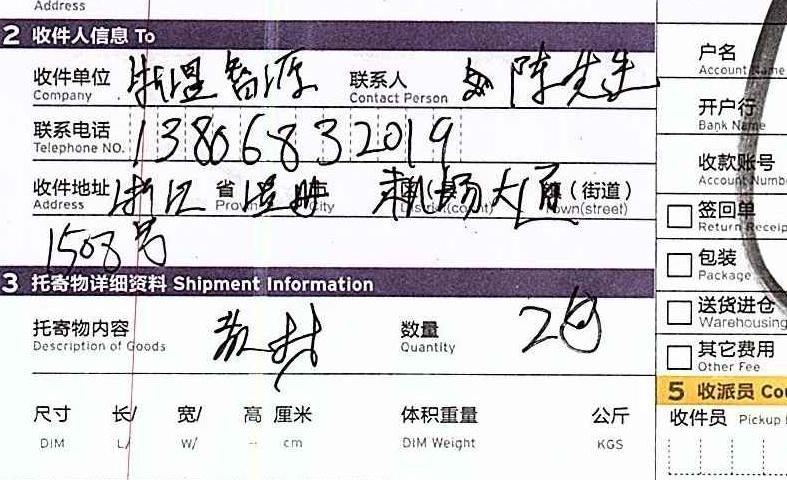 Address
2 收件人信息 To
收件单位 Company 浙温智源 联系人 Contact Person 陈先生
联系电话 Telephone NO. 13806832019
收件地址 Address 浙江 省 Provin 温州 市 City 机场大道 District(county) (街道) Town(street)
1508号
3 托寄物详细资料 Shipment Information
托寄物内容 Description of Goods 教材 数量 Quantity 2包
尺寸 长/ 宽/ 高 厘米 体积重量 公斤
DIM L/ W/ -- cm DIM Weight KGS
户名
Account Name
开户行
Bank Name
收款账号
Account Numb
签回单
Return Receip
包装
Package
送货进仓
Warehousing
其它费用
Other Fee
5 收派员 Cou
收件员 Pickup